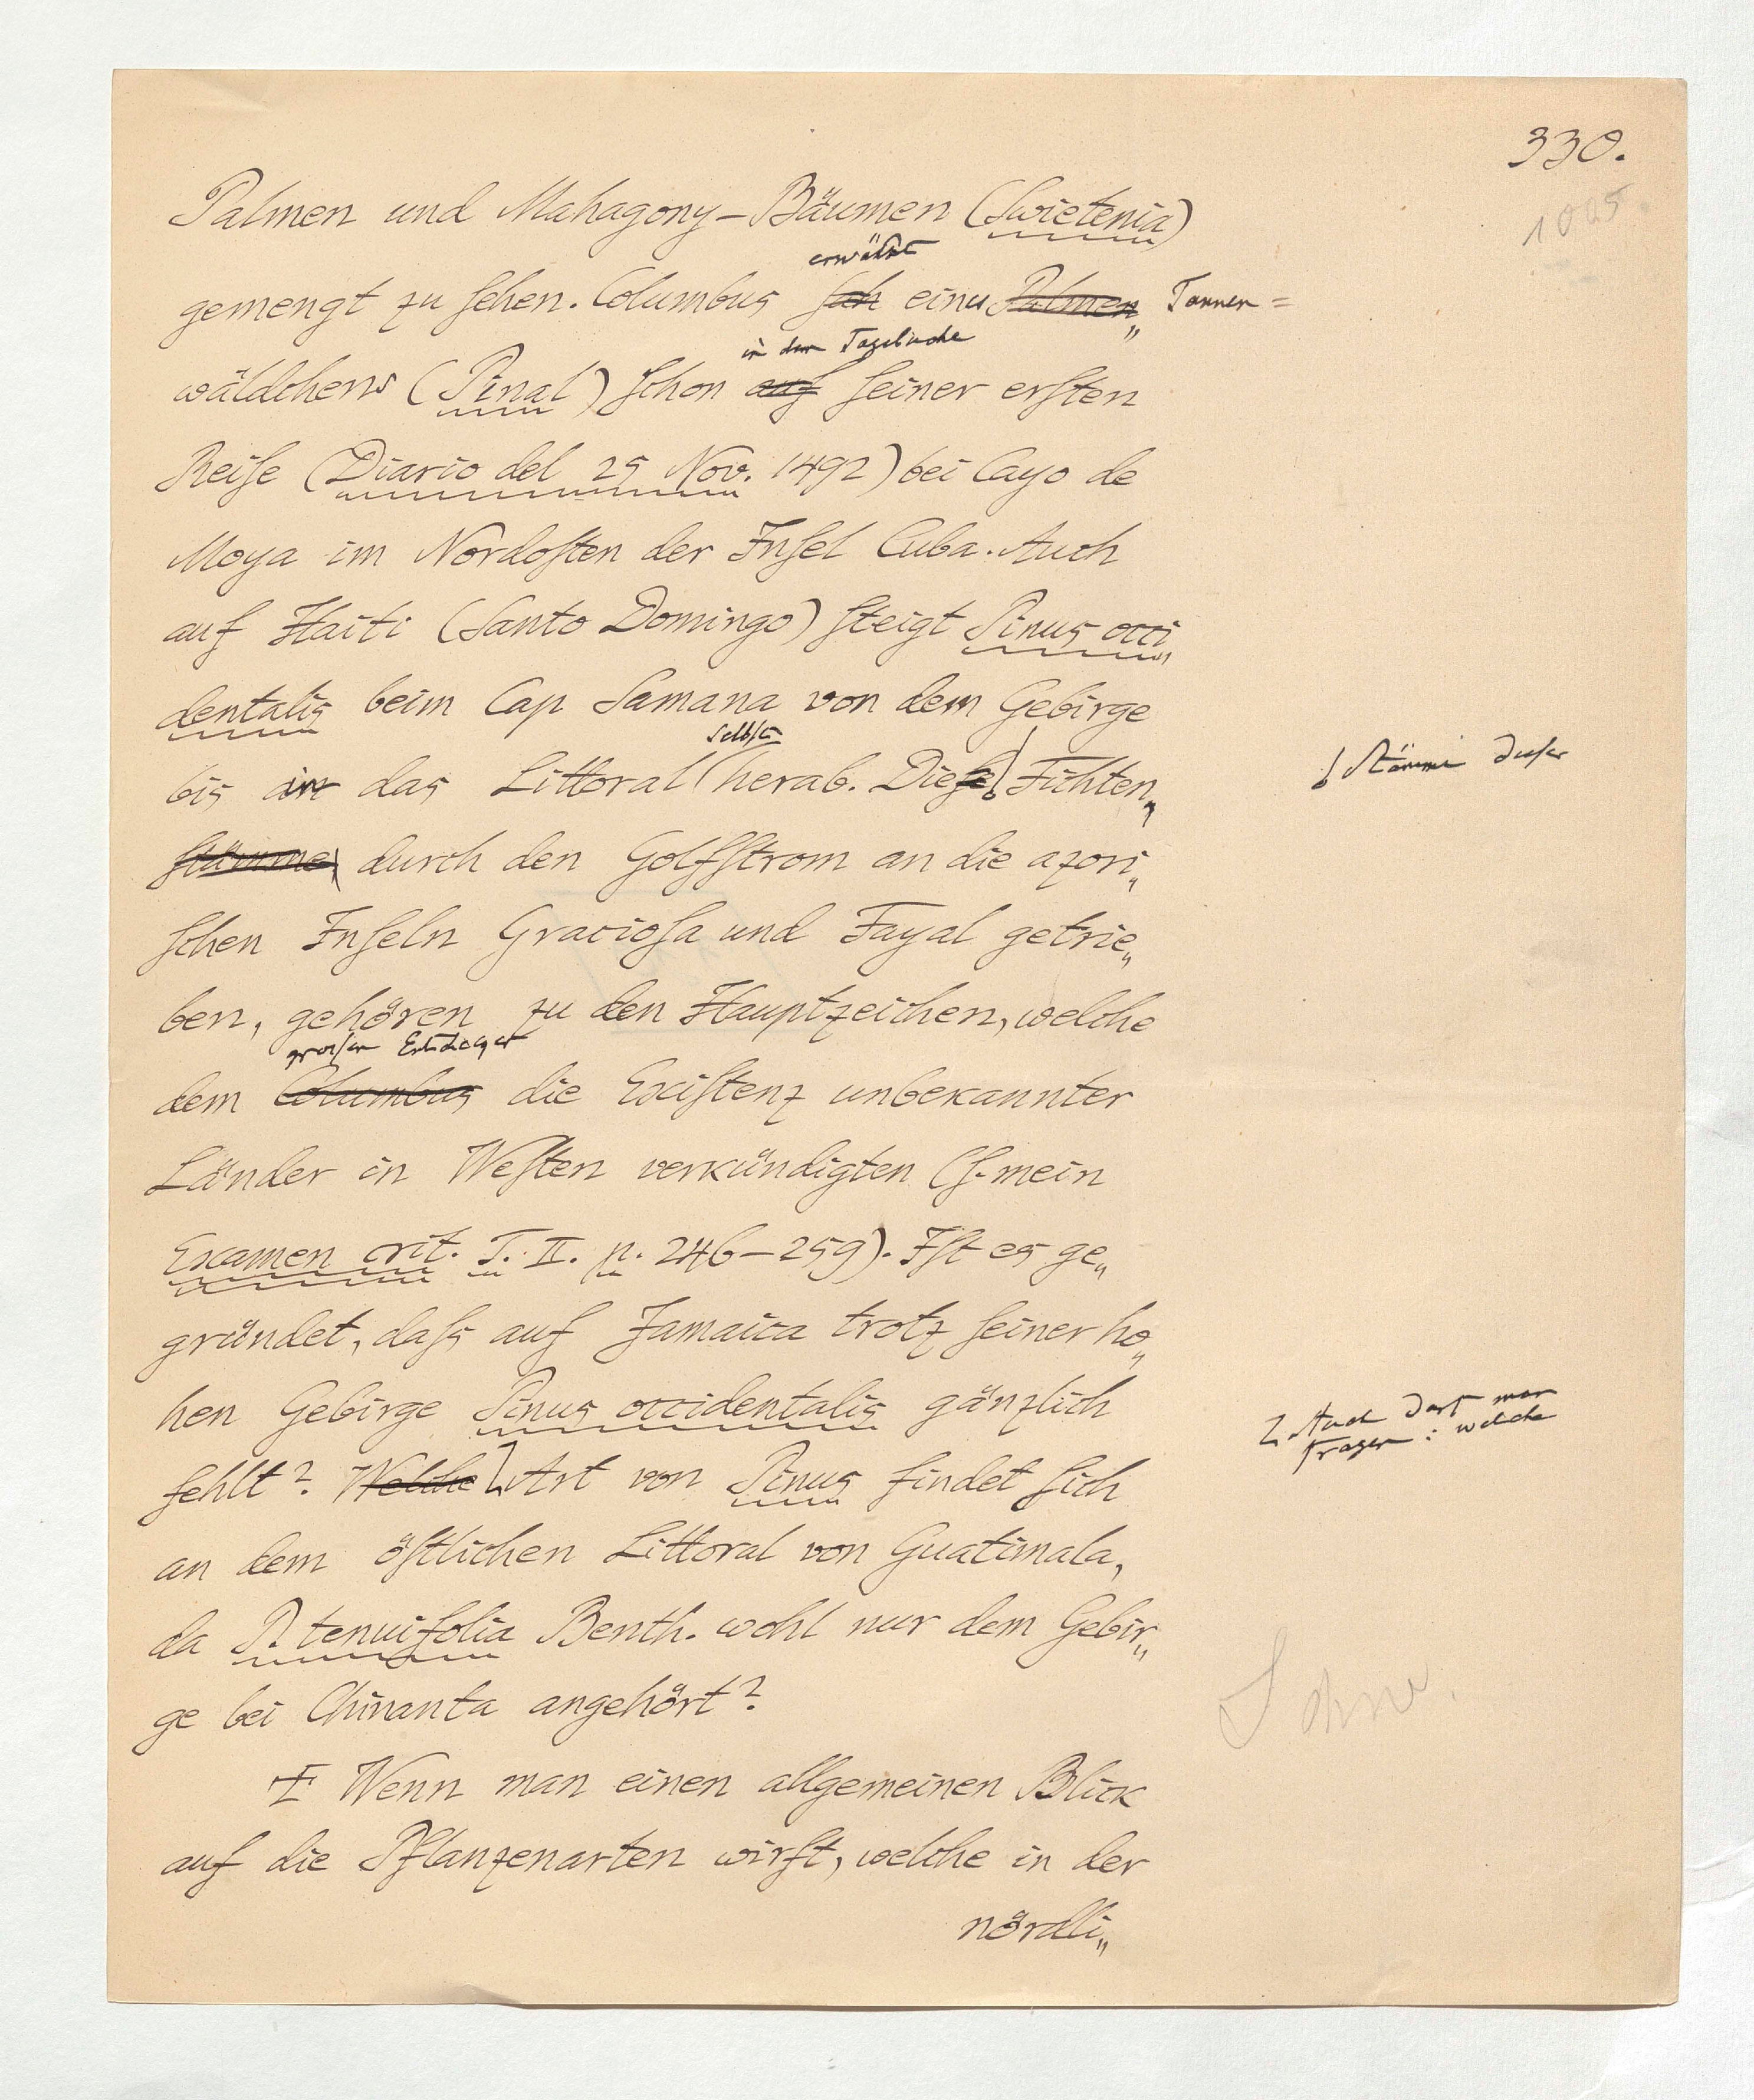 330.
1005
Palmen und Mahagony-Bäumen (Swietenia)
erwähnt
gemengt zu sehen. Columbus sah eines Palmen„ Tannen=
in dem Tagebuche
wäldchens (Pinal) schon auf seiner ersten
Reise (Diario del 25 Nov. 1492) bei Cayo de
Moya im Nordosten der Insel Cuba. Auch
auf Haiti (Santo Domingo) steigt Pinus occi„
dentalis beim Cap Samana von dem Gebirge
selbst
bis in das Littoral herab. Diese Fichten„
Stämme dieser
stämme durch den Golfstrom an die azori„
schen Inseln Graciosa und Fayal getrie„
ben, gehören zu den Hauptzeichen, welche
großen Entdecker
dem Columbus die Existenz unbekannter
Länder in Westen verkündigten (s. mein
Examen crit. T. II. p. 246–259). Ist es ge„
gründet, dass auf Jamaica trotz seiner ho„
hen Gebirge Pinus occidentalis gänzlich
Auch darf man
fragen: welche
fehlt? Welche Art von Pinus findet sich
an dem östlichen Littoral von Guatimala,
da P. tenuifolia Benth. wohl nur dem Gebir„
ge bei Chinanta angehört?
Wenn man einen allgemeinen Blick
auf die Pflanzenarten wirft, welche in der
nördli„